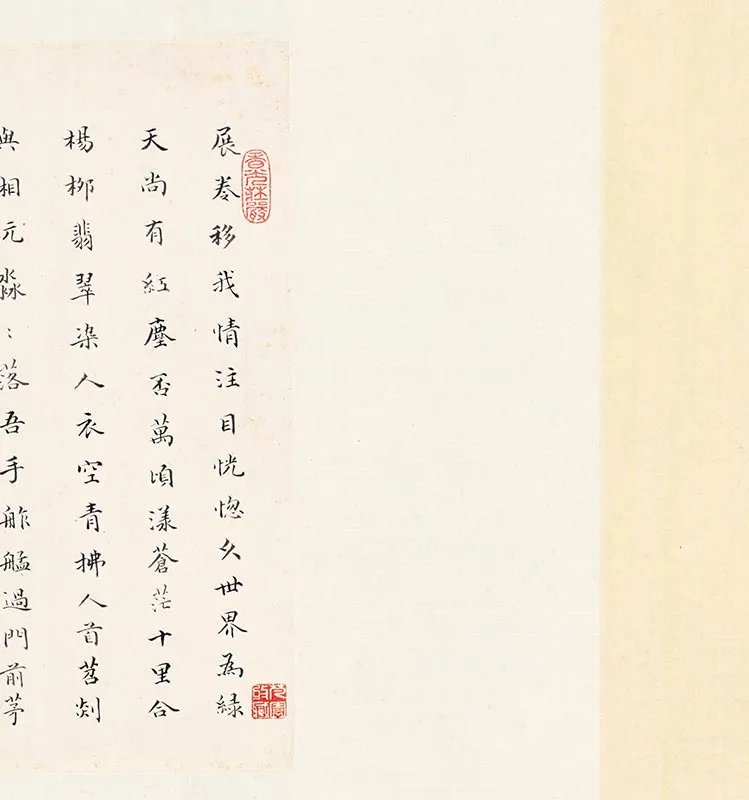 香光莊嚴
展卷移我情注目恍惚久世界為綠
天尚有紅塵否萬頃漾蒼茫十里合
楊柳翡翠染人衣空青拂人首苕剡
與相元淼：落吾手舴艋過門前茅